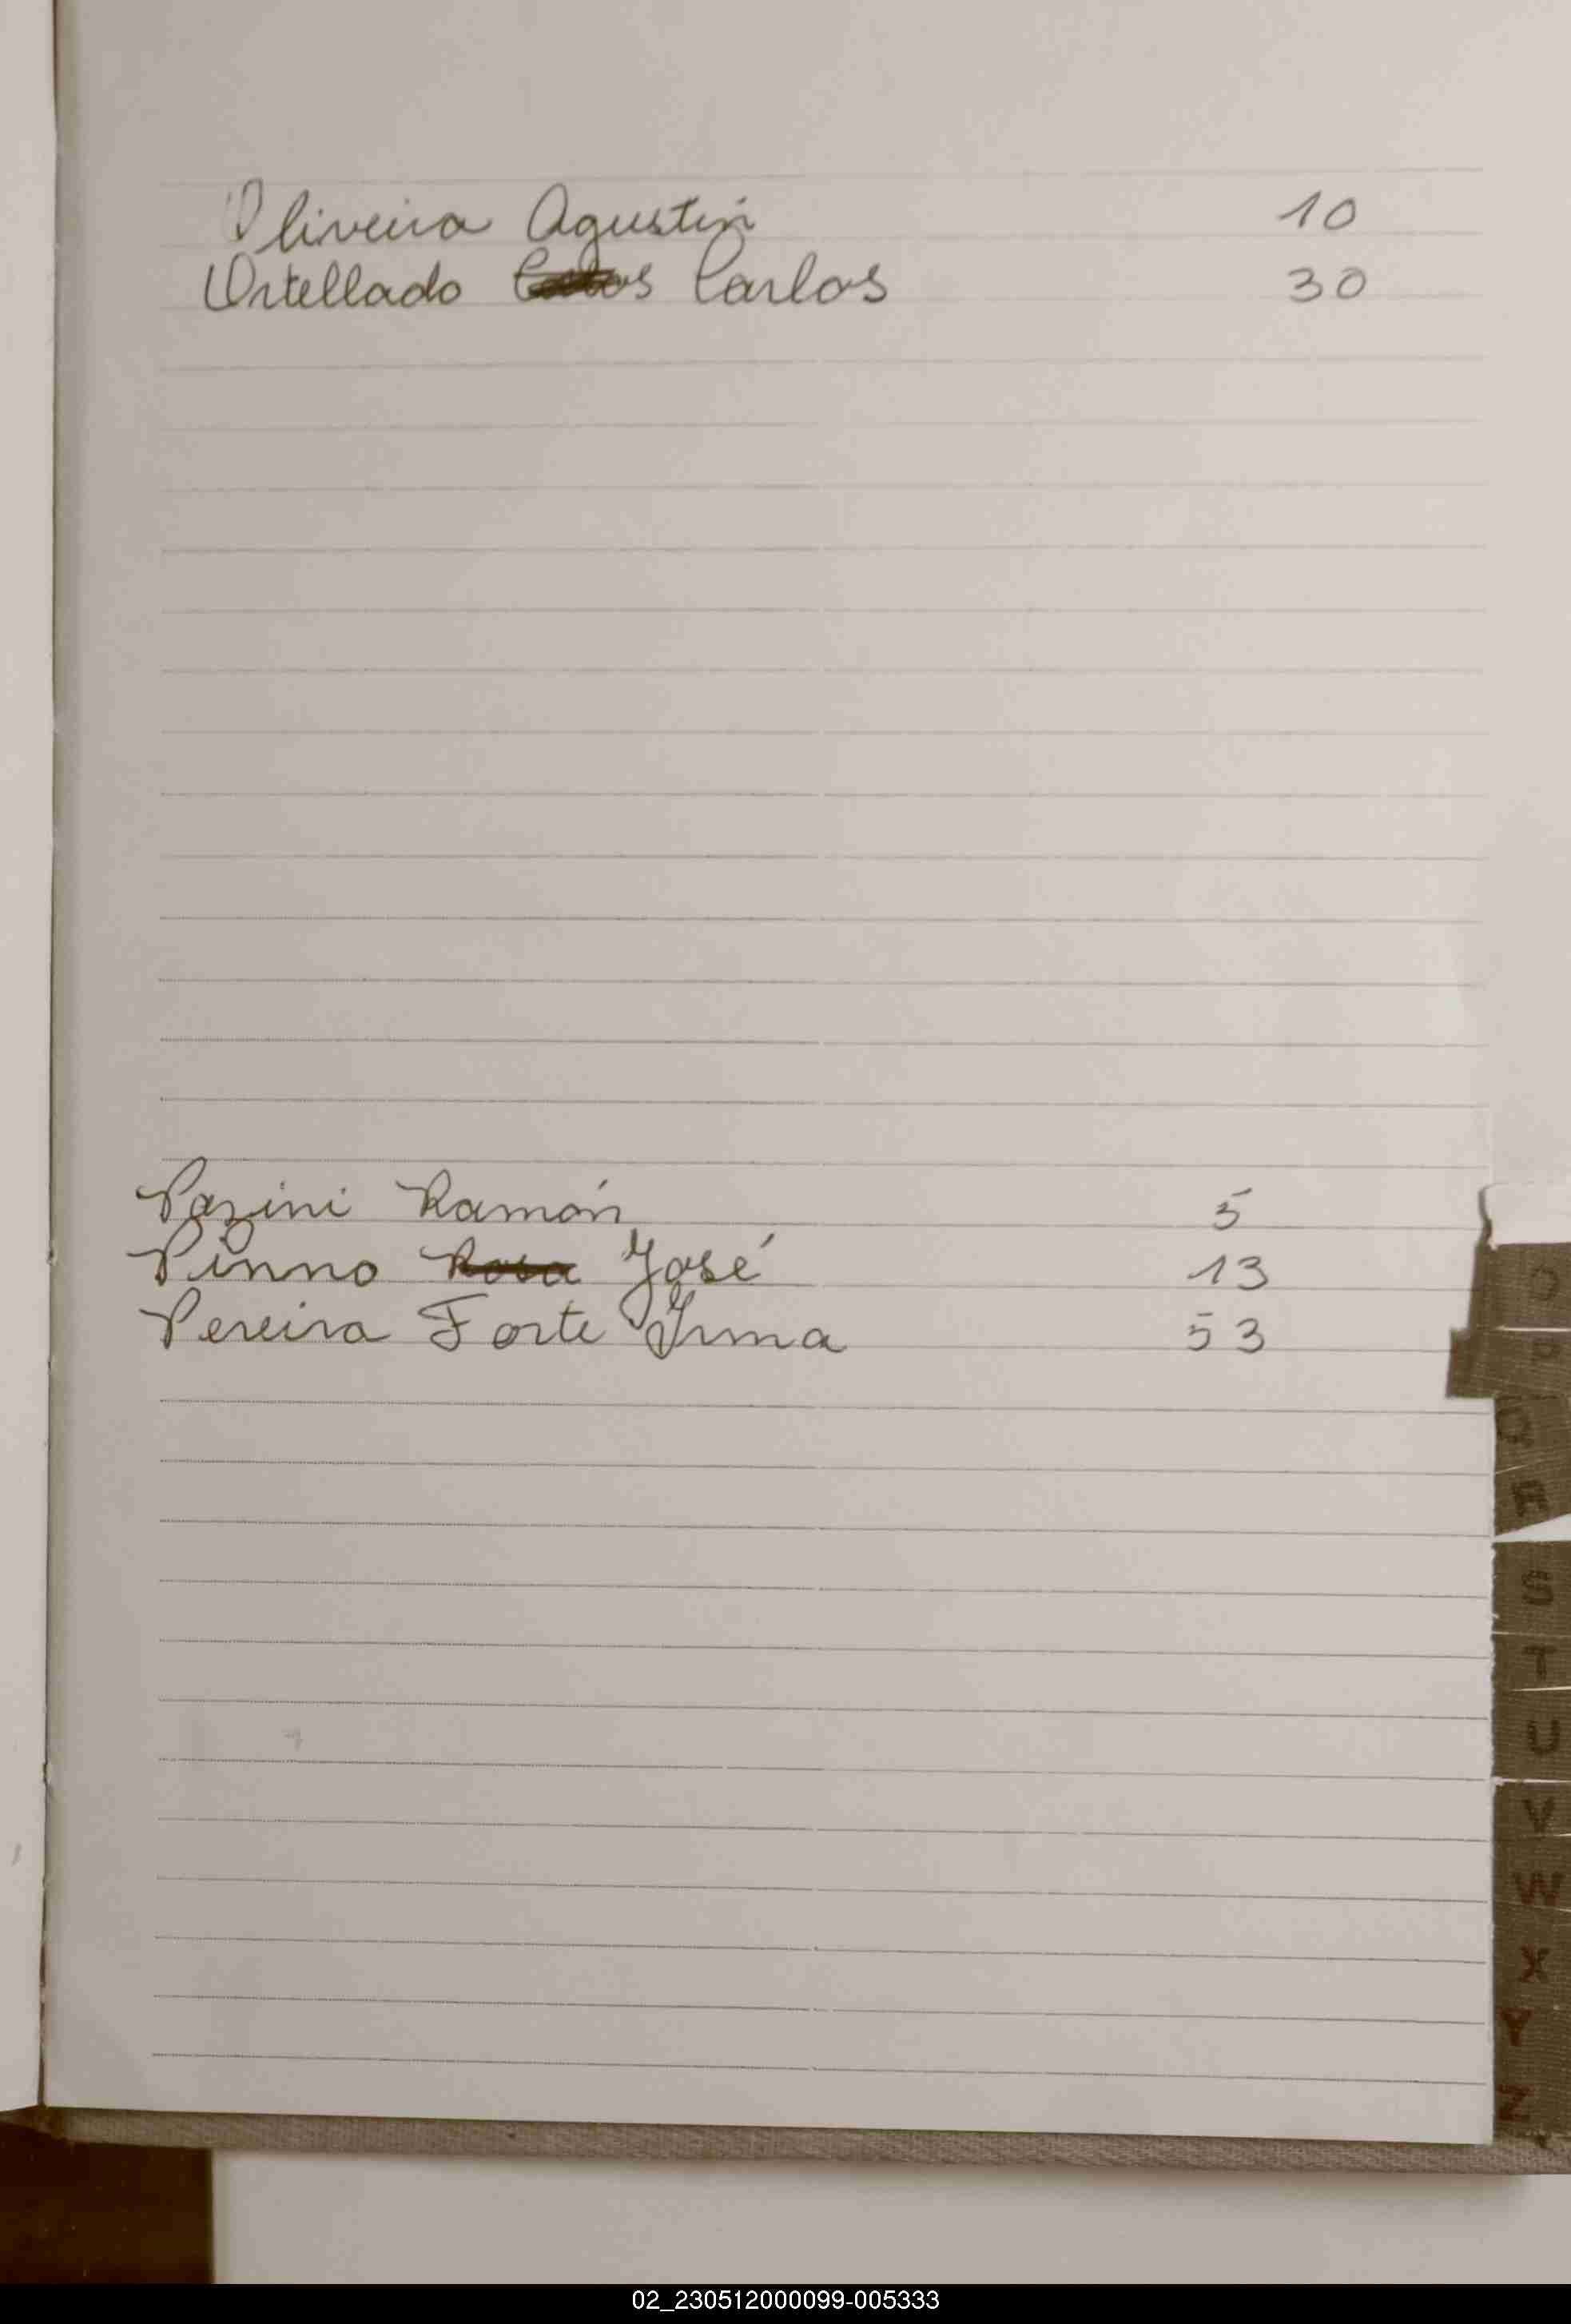 Oliveira Agustin 10
Ortellado Carlos 30
Pazini Ramón 5
Pinno Rosa José 13
Pereira Forte Irma 53
O
P
Q
R
S
T
U
V
W
X
Y
Z
02_230512000099-005333